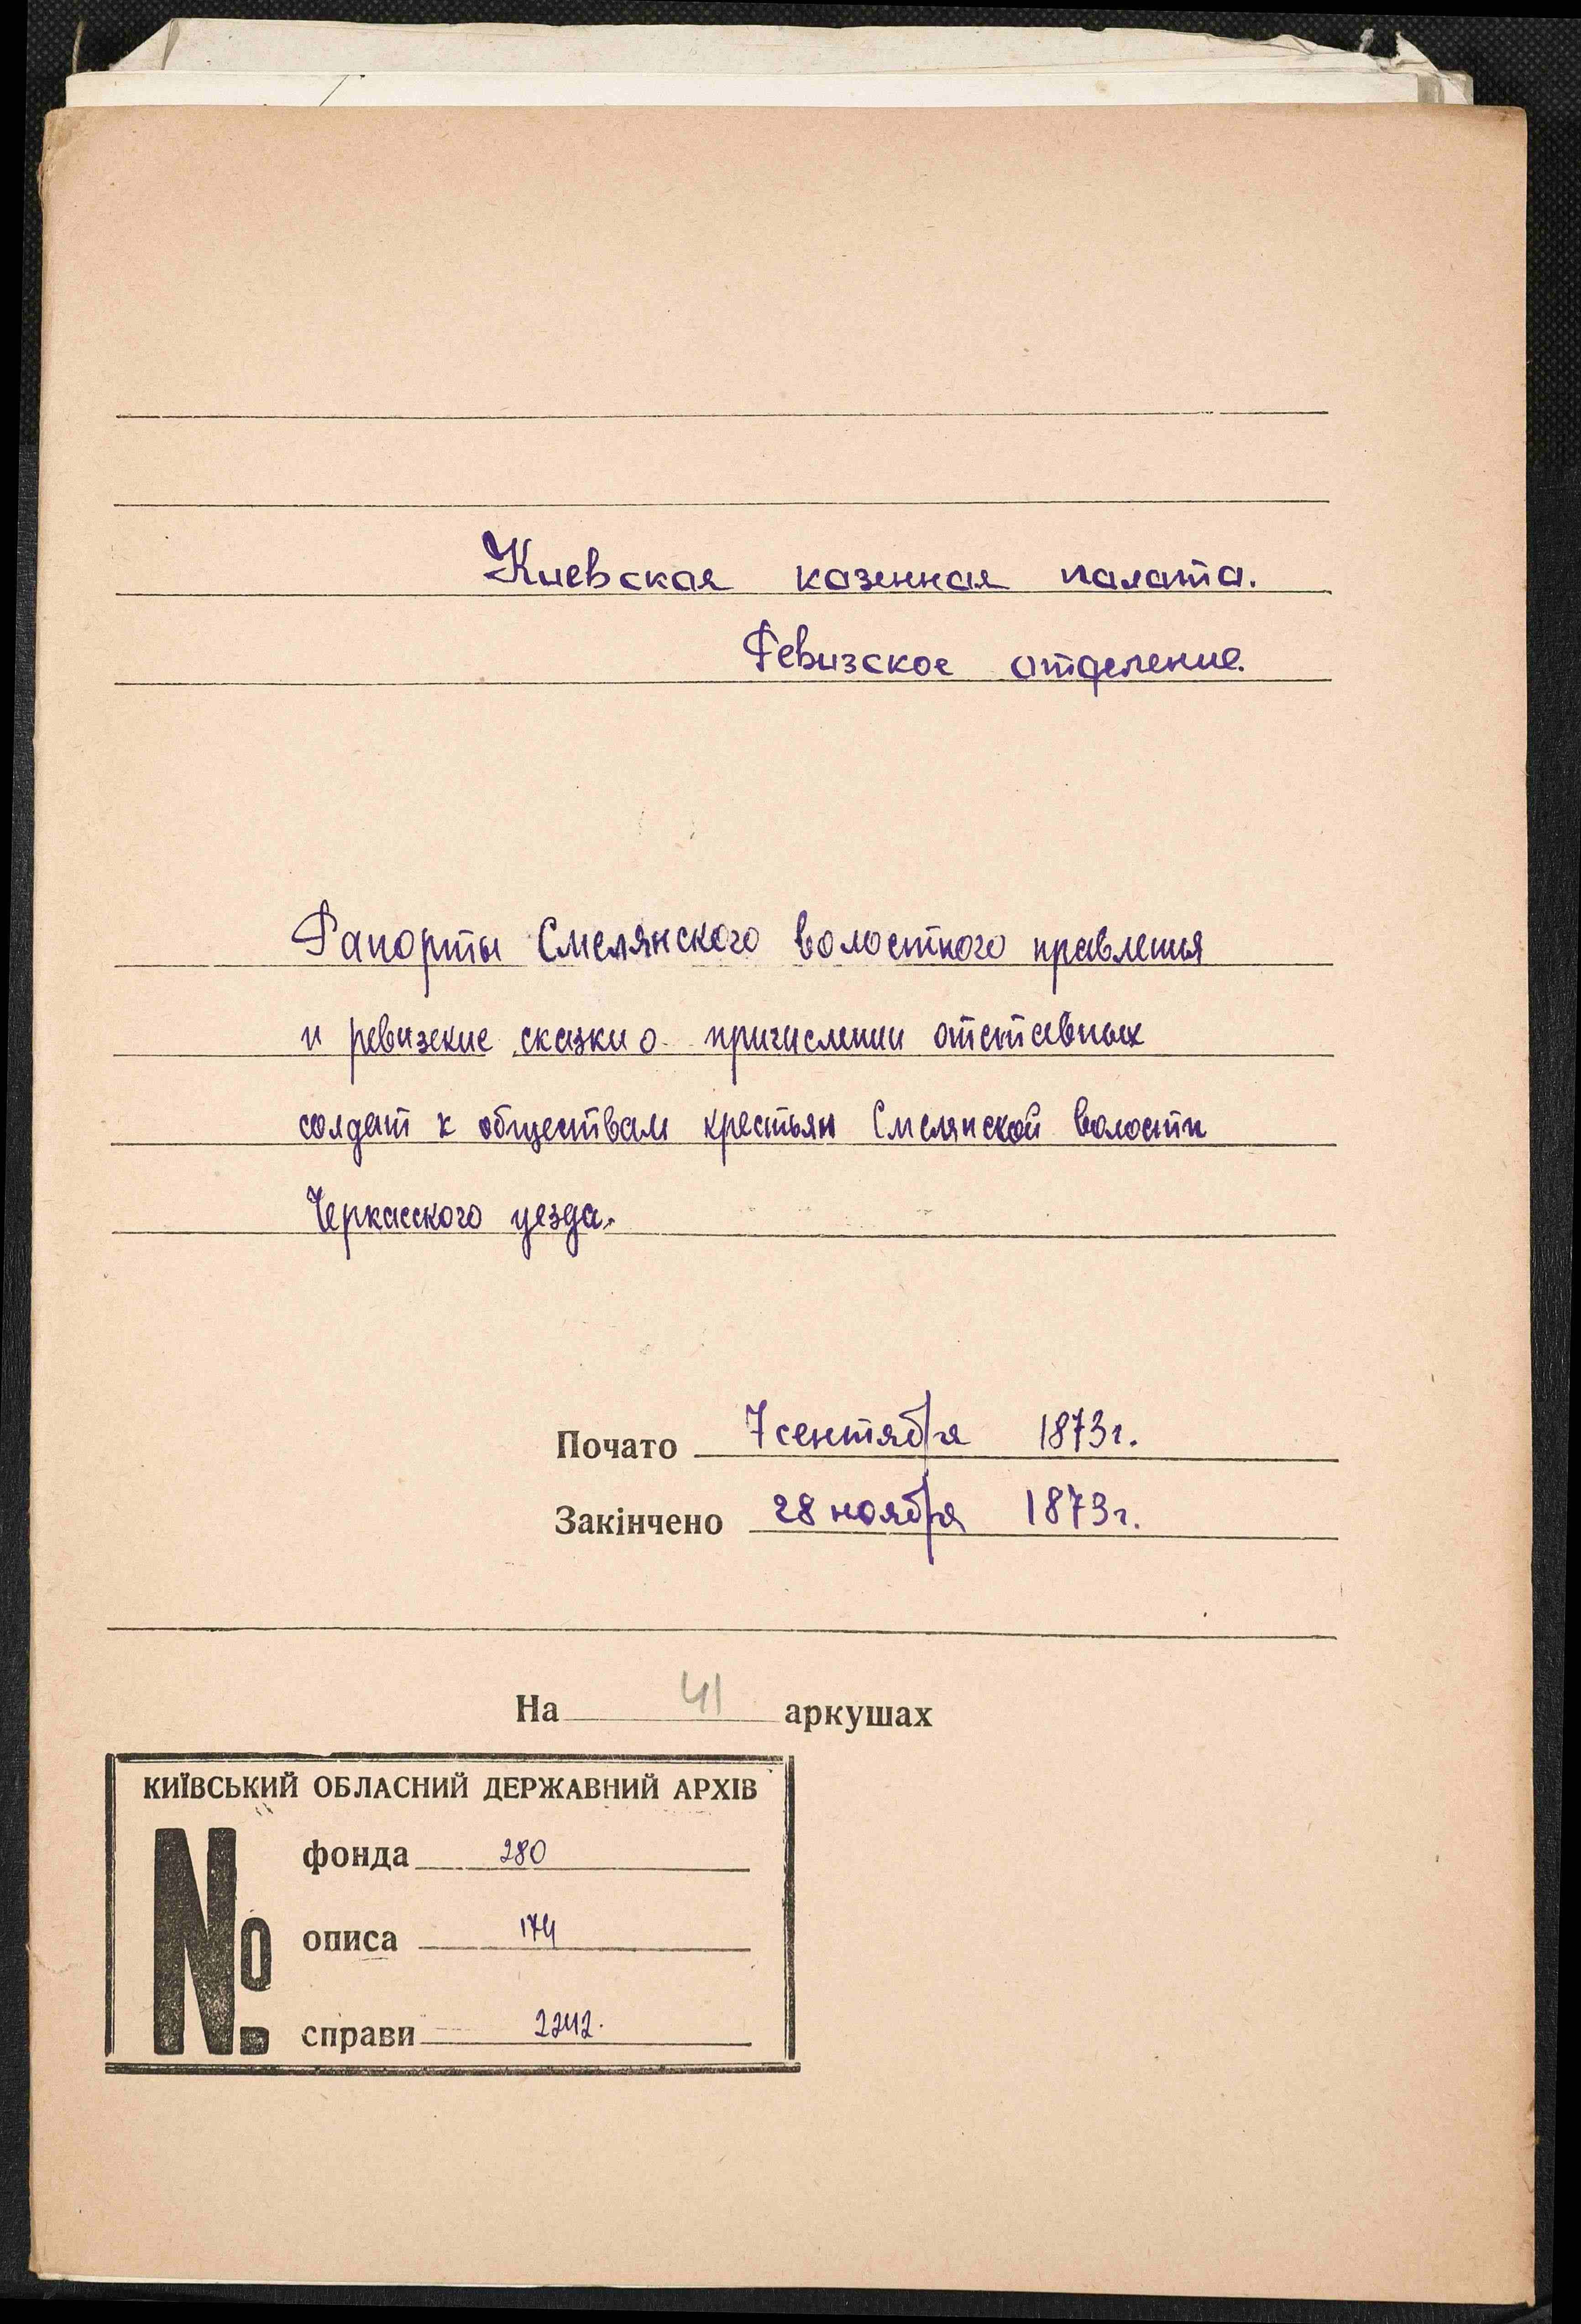 Киевская казенная палата.
Ревизское отделение.
Рапорты Смелянского волостного правления
и ревизские сказки о причислении отставных
солдат к обществам крестьян Смелянской волости
Черкасского уезда.
Почато 7 сентября 1873 г.
Закінчено 28 ноября 1873 г.
На 41 аркушах
КИЇВСЬКИЙ ОБЛАСНИЙ ДЕРЖАВНИЙ АРХІВ
№
фонда 280
описа 174
справи 2242.